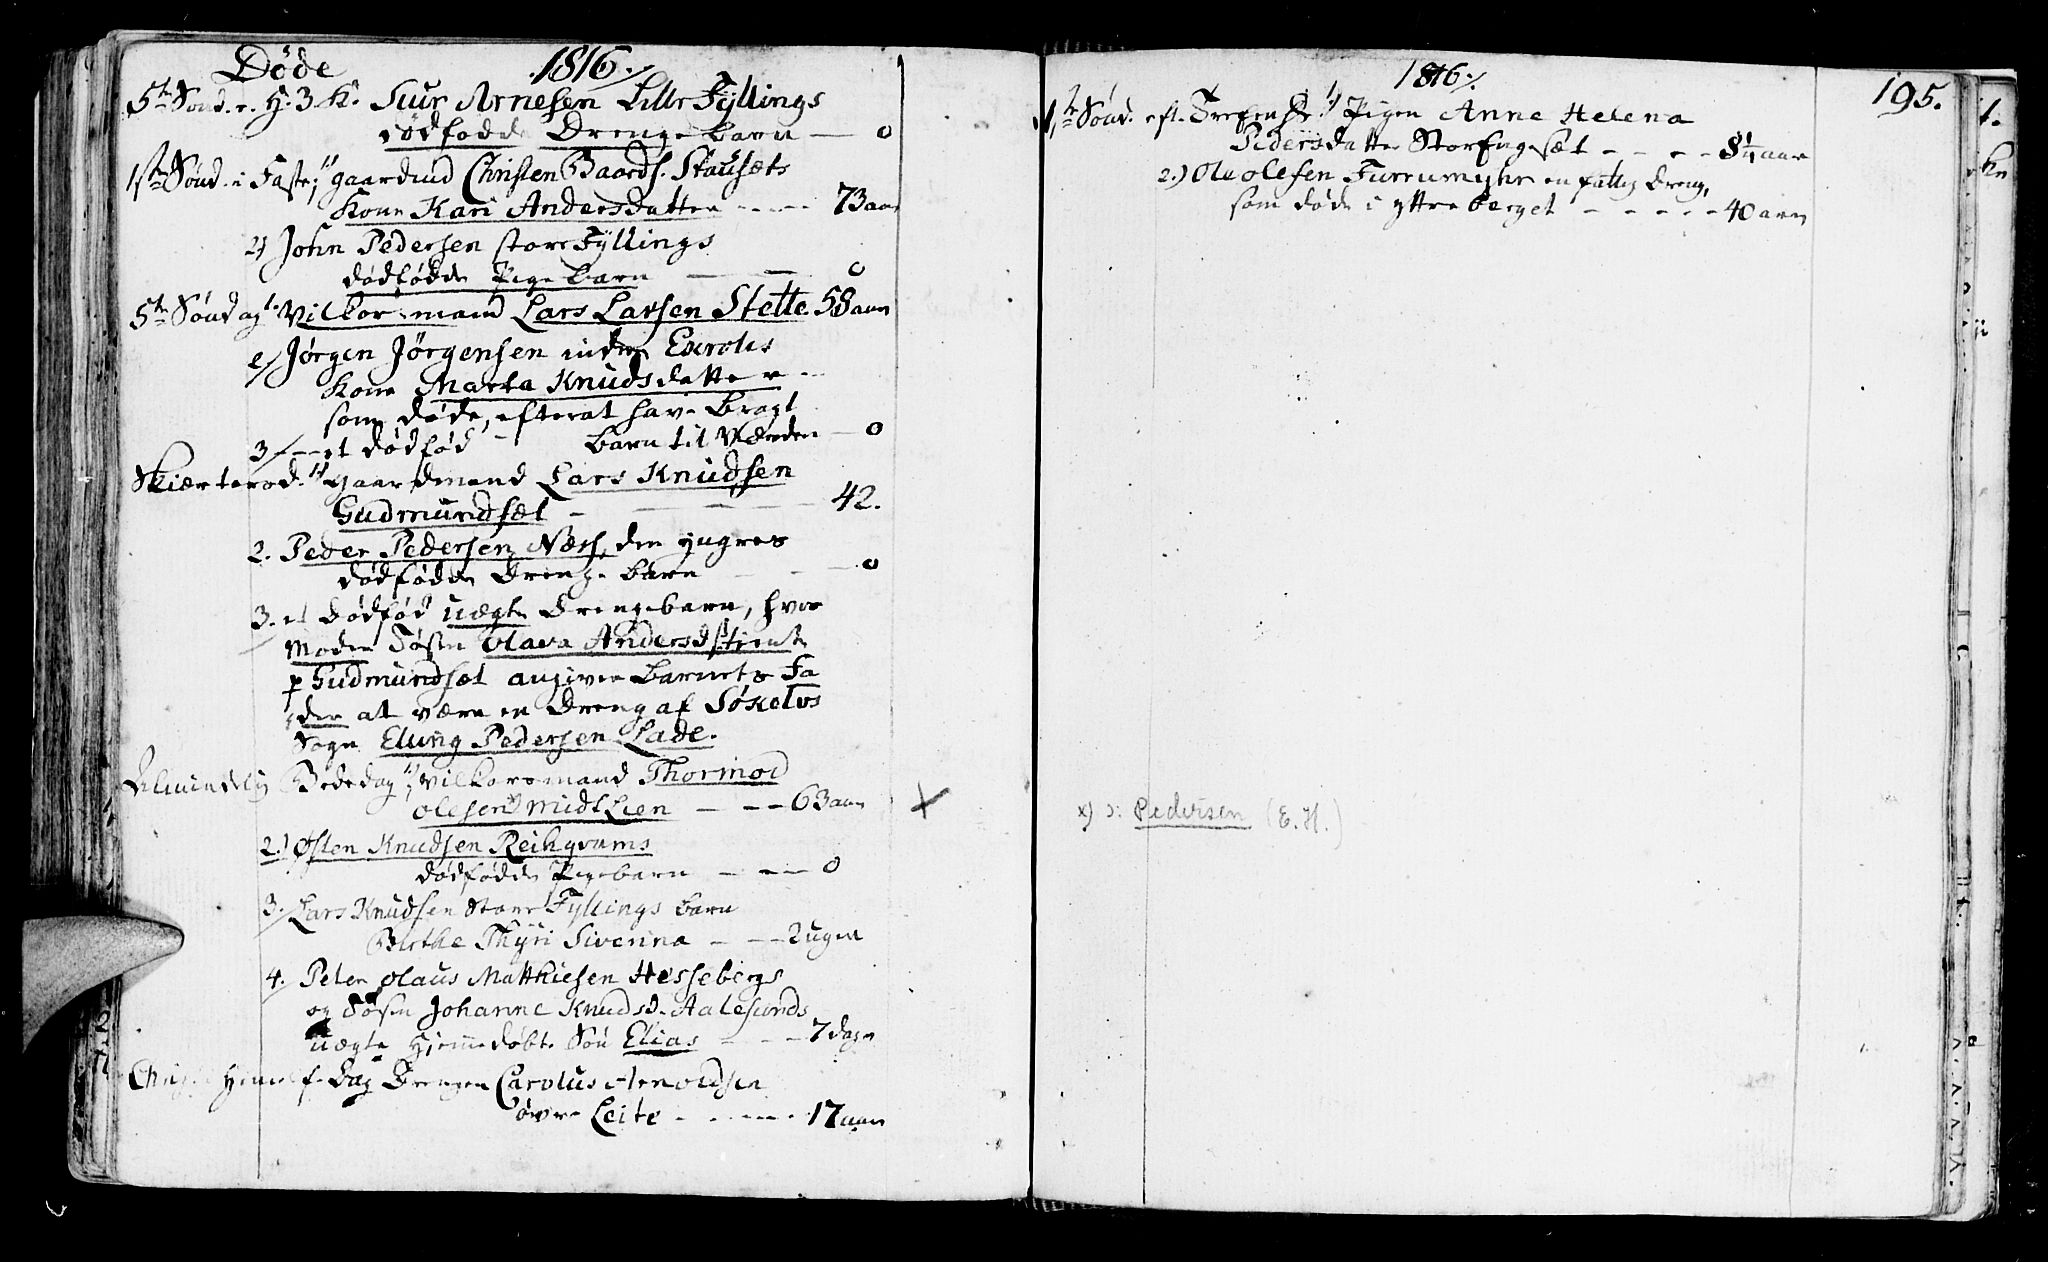 Døde 1816./.
5te Sønd. e. H. 3 K. Siur Arnesen Lille Fyllings
dødfødde Drenge barn — 0
1ste Sønd. i Faste, 1) gaardmd Christen Baards. Stavsæts
Kone Kari Andersdatter - - - - 73 aar
2) John Pedersen store Fyllings
dødfødde Pige barn — — 0
5te Søndag 1. Vilkorsmand Lars Larsen Stette. 58 aar
2/ Jørgen Jørgensen indre
Kone Marta Knudsdatter - -
som døde, efter at have bragt
3 - - - et dødfød barn til Verden — 0
Skiærtorsd. 1) gaardmand Lars Knudsen
Gudmundsæt - — — — 42.
2. Peder Pedersen Næss, den yngres
dødfødde Drenge barn — — 0
3. et dødfød uægte Drengebarn, hvis
Moder Tøsen Olava Andersd. tiente
p Gudmundsæt angiver barnets Fa
der at være en Dreng af Søkelvs
Sogn Elling Pedersen Lade.
Almindelig Bededag, 1) Vilkorsmand Thormod
Olesen x) Midtlien — - - 63 aar X
2.) Østen Knudsen Reikqvams
dødfødde Pigebarn — — — 0
3. Lars Knudsen Store Fyllings barn
Birthe Thyri Siverina — — 2 uger
4. Peter Olaus Matthiesen Hesseberg
og Tøsen Johanne Knudsd. Aalesunds
uægte hjemmedøbt Søn Elias — - - 7 dage
Christi Himmelf. Dag Drengen Carolus Arnoldsen
øvre Leite - - - - 17 aar
1816./. 195.
1te Sønd. eft. Trefor 1) Pigen Anne Helena
Pedersdatter Storengesæt - - - - 8 aar
2.) Ole Olesen Furrumyhr en fattig dreng,
som døde i yttre berget - - - - - 40 aar
x) ɔ: Pedersen (E.H.)